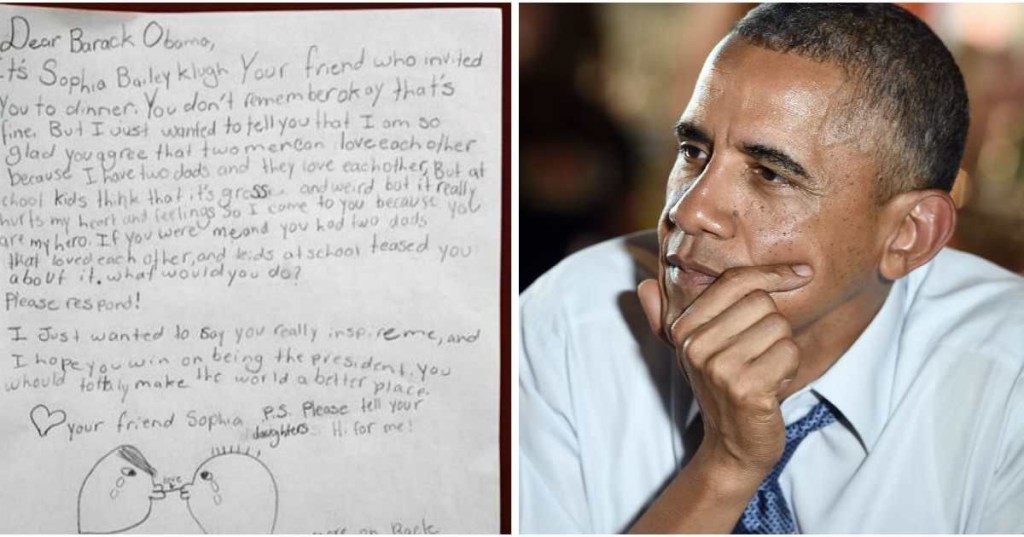 Dear Barack Obama,
It's Sophia Bailey Klugh Your friend who invited
You to dinner. You don't remember okay that's
fine. But I Just wanted to tell you that I am so
glad you agree that two men can love each other
because I have two dads and they love each other, But at
school kids think that it's gross and weird but it really
hurts my heart and feelings So I come to you because you
are my hero. If you were me and you had two dads
that loved each other, and kids at school teased you
about it. what would you do?
Please respond!
I Just wanted to say you really inspire me, and
I hope you win on being the president. you
whould totaly make the world a better place.
your friend Sophia P.S. Please tell your
daughters Hi for me!
love
more on Back